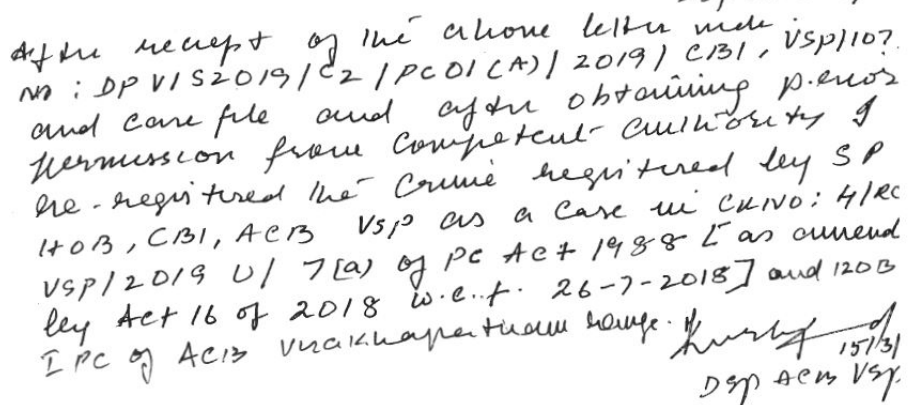 After receipt of the above letter vide
No : DPVIS2019/C2/PC01(A)/2019/CBI, VSP/107
and case file and after obtaining prior
permission from Competent authority I
re-registered the Crime registered by SP
HOB, CBI, ACB VSP as a Case in CR.NO: 4/RC
VSP/2019 U/ 7(a) of PC Act 1988 [as amend
by Act 16 of 2018 w.e.f. 26-7-2018] and 120B
IPC of ACB Visakhapatnam range.
15/3/
DSP ACB VSP.